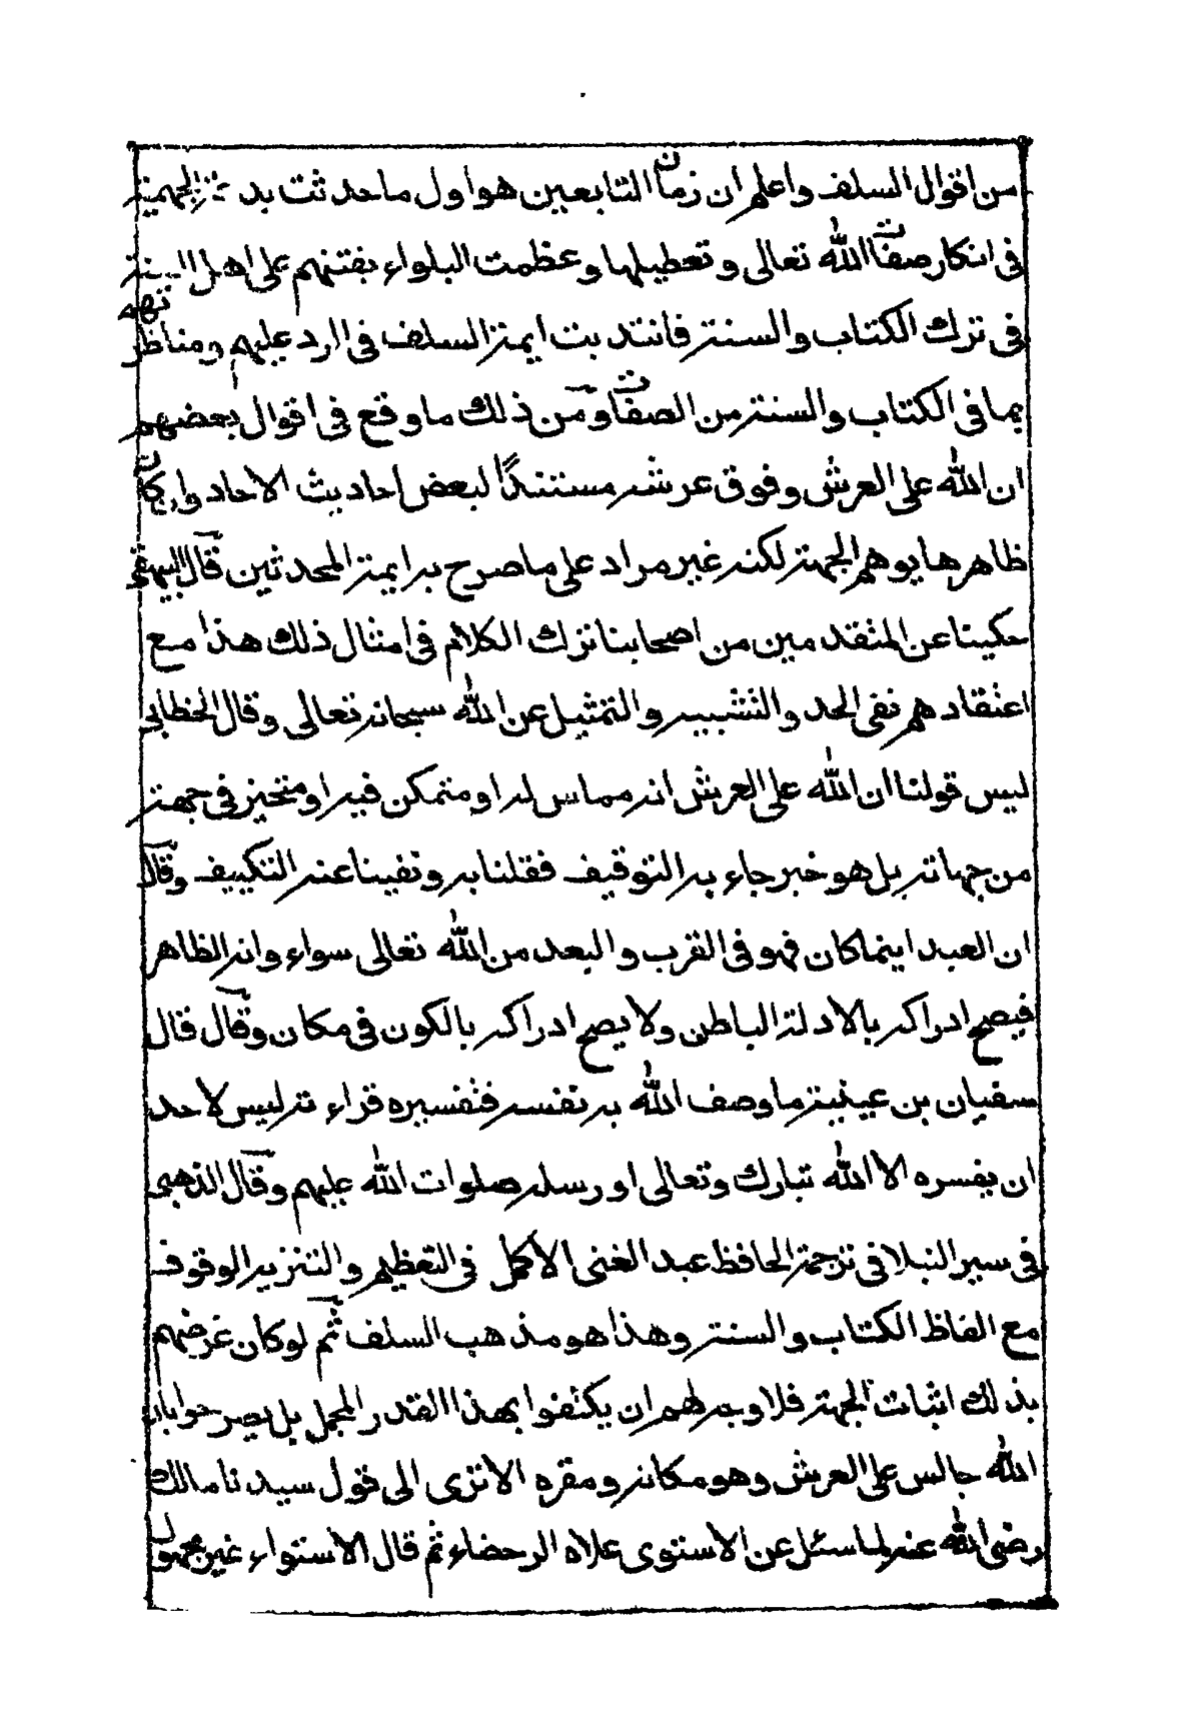 من اقوال السلف واعلم ان زمان التابعين هو اول ما حدثت بدعة الجهمية
في انكار صفات الله تعالى وتعطيلها وعظمت البلواء بفتنهم على اهل السنة
في ترك الكتاب والسنة فانتدبت ايمة السلف في الرد عليهم ومناظرتهم
بما في الكتاب والسنة من الصفات ومن ذلك ما وقع في اقوال بعضهم
ان الله على العرش وفوق عرشه مستندًا لبعض احاديث الاحاد وان كان
ظاهرها يوهم الجهة لكنه غير مراد على ما صرح به ايمة المحدثين قال البيهقي
حكينا عن المتقدمين من اصحابنا ترك الكلام في امثال ذلك هذا مع
اعتقادهم نفي الحد والتشبيه والتمثيل عن الله سبحانه تعالى وقال الخطابي
ليس قولنا ان الله على العرش انه مماس له او متمكن فيه او متحيز في جهة
من جهاته بل هو خبر جاء به التوقيف فقلنا به ونفينا عنه التكييف وقال
ان العبد اينما كان فهو في القرب والبعد من الله تعالى سواء وانه الظاهر
فيصح ادراكه بالادلة الباطن ولا يصح ادراكه بالكون في مكان وقال قال
سفيان بن عيينة ما وصف الله به نفسه فتفسيره قراءته ليس لاحد
ان يفسره الا الله تبارك وتعالى او رسله صلوات الله عليهم وقال الذهبي
في سير النبلا في ترجمة الحافظ عبد الغني الاكمل في التعظيم والتنزيه الوقوف
مع الفاظ الكتاب والسنة وهذا هو مذهب السلف ثم لو كان غرضهم
بذلك اثبات الجهة فلا وجه لهم ان يكتفوا بهذا القدر المجمل بل يصرحوا بان
الله جالس على العرش وهو مكانه ومقره الا ترى الى قول سيدنا مالك
رضي الله عنه لما سئل عن الاستوى علاه الرحضاء ثم قال الاستواء غير مجهول